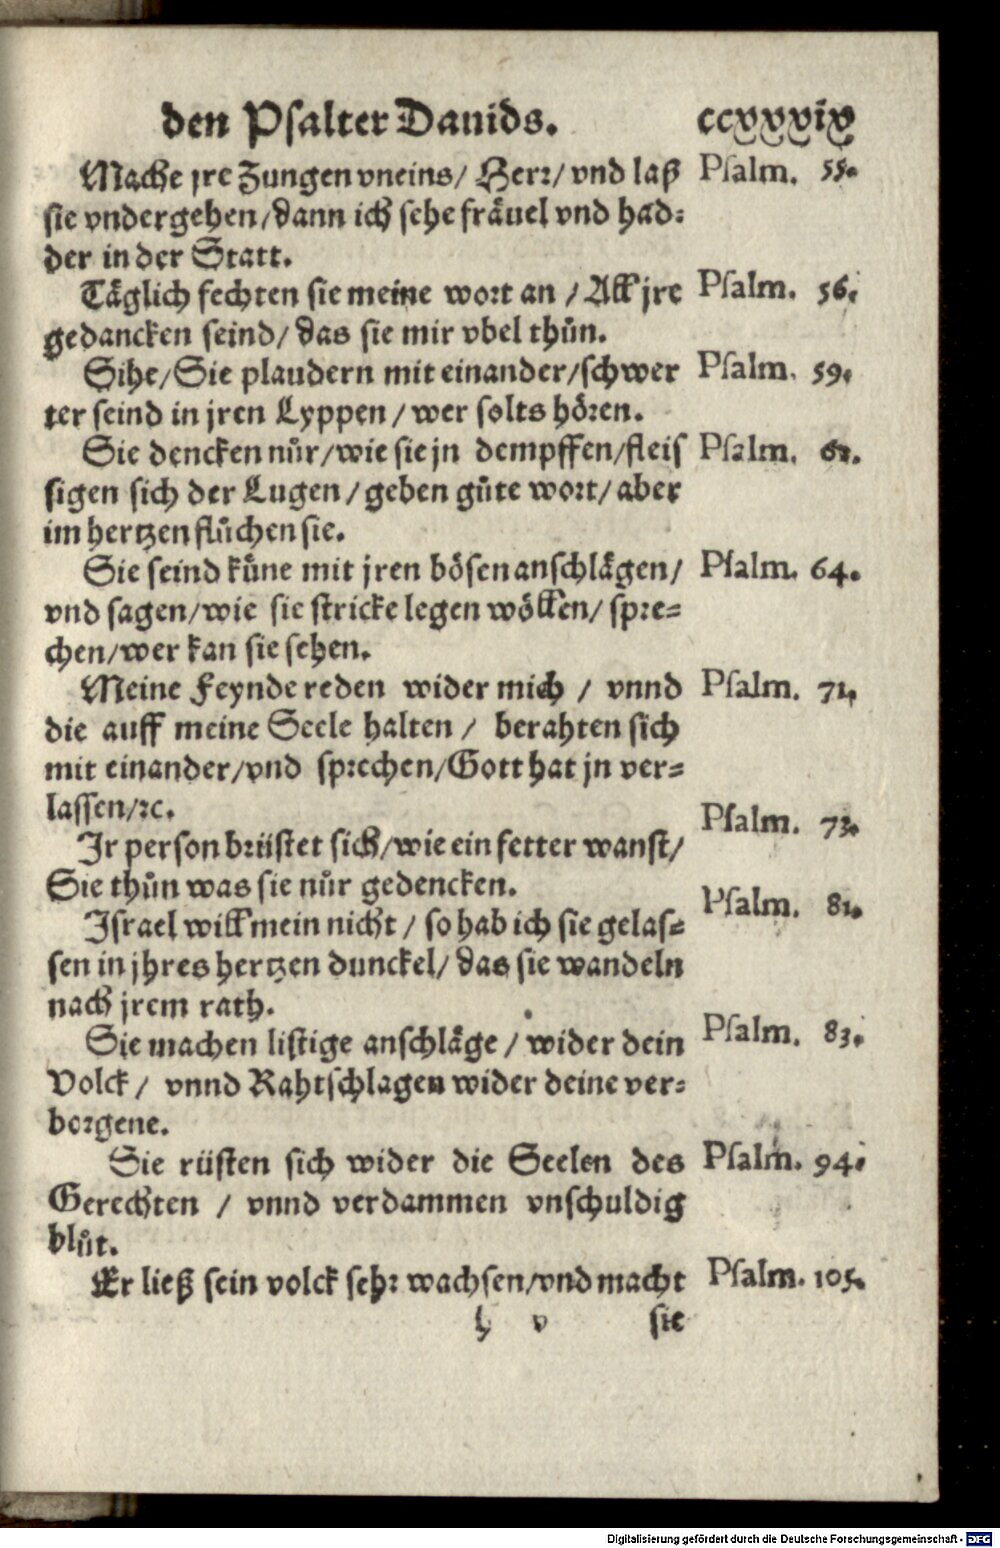 den Psalter Dauids. ccxxxix
Mache jre Zungen vneins/ Herr/ vnd laß Psalm. 55.
sie vndergehen/dann ich sehe fräuel vnd had-
der in der Statt.
Täglich fechten sie meine wort an / All jre Psalm. 56.
gedancken seind/ das sie mir vbel thůn.
Sihe/Sie plaudern mit einander/schwer Psalm. 59.
ter seind in jren Lyppen / wer solts hören.
Sie dencken nůr/wie sie jn dempffen/fleis Psalm. 62.
sigen sich der Lugen / geben gůte wort/ aber
im hertzen flůchen sie.
Sie seind kůne mit jren bösen anschlägen/ Psalm. 64.
vnd sagen/wie sie stricke legen wöllen/ spre-
chen/wer kan sie sehen.
Meine Feynde reden wider mich / vnnd Psalm. 71.
die auff meine Seele halten / berahten sich
mit einander/vnd sprechen/Gott hat jn ver-
lassen/ꝛc.
Jr person brüstet sich/wie ein fetter wanst/ Psalm. 73.
Sie thůn was sie nůr gedencken.
Israel will mein nicht / so hab ich sie gelas- Psalm. 81.
sen in jhres hertzen dunckel/ das sie wandeln
nach jrem rath.
Sie machen listige anschläge / wider dein Psalm. 83.
Volck / vnnd Rahtschlagen wider deine ver-
borgene.
Sie rüsten sich wider die Seelen des Psalm. 94.
Gerechten / vnnd verdammen vnschuldig
blůt.
Er ließ sein volck sehr wachsen/vnd macht Psalm. 105.
h v sie
Digitalisierung gefördert durch die Deutsche Forschungsgemeinschaft - DFG